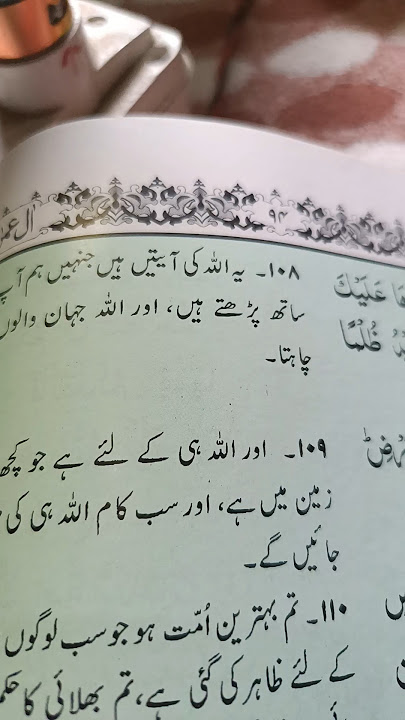 ۹۴
۱۰۸۔ یہ اللہ کی آیتیں ہیں جنہیں ہم آپ
ساتھ پڑھتے ہیں، اور اللہ جہان والوں
چاہتا۔
عَلَيْكَ
ظُلْمًا
۱۰۹۔ اور اللہ ہی کے لئے ہے جو کچھ
زمین میں ہے، اور سب کام اللہ ہی کی
جائیں گے۔
۱۱۰۔ تم بہترین اُمّت ہو جو سب لوگوں
کے لئے ظاہر کی گئی ہے، تم بھلائی کا